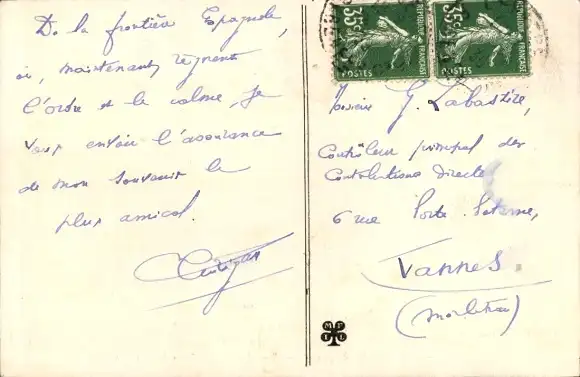 De la frontière Espagnole,
où, maintenant, règnent
l'ordre et le calme, je
vous envoie l'assurance
de mon souvenir le
plus amical.
35c
POSTES
FRANÇAISE
35c
POSTES
FRANÇAISE
Monsieur G. Labastire,
Contrôleur principal des
Contributions Directes
6 rue Porte Poterne,
Vannes.
(Morbihan)
M T
I L